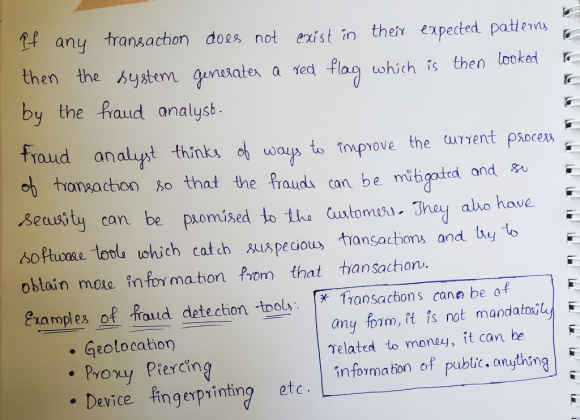 If any transaction does not exist in their expected patterns
then the system generates a red flag which is then looked
by the fraud analyst.
Fraud analyst thinks of ways to improve the current process
of transaction so that the frauds can be mitigated and so
security can be promised to the customers. They also have
software tools which catch suspecious transactions and try to
obtain more information from that transaction.
Examples of fraud detection tools:
• Geolocation
• Proxy Piercing
• Device fingerprinting etc.
* Transactions can be of
any form, it is not mandatorily
related to money, it can be
information of public. anything